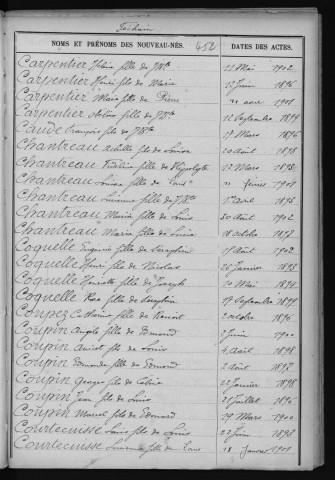 Féchain
NOMS ET PRÉNOMS DES NOUVEAU-NÉS.
452
DATES DES ACTES.
Carpentier fille de 22 Mai 1902
Carpentier Henri fils de Marie 12 Juin 1896
Carpentier Marie fille de Pierre 1901
Carpentier fille de 12 Septembre 1899
Caudé François fils de 17 Mars 1896
Chantreau Achille fils de Louis 20 Août 1898
Chantreau fille d'Hippolyte 12 Mars 1898
Chantreau Louise fille de Louis 11 février 1901
Chantreau Lucienne fille de 1er avril 1895
Chantreau Maria fille de Louis 30 Août 1902
Chantreau Maria fille de Louis 18 octobre 1897
Coquelle Eugénie fille de Séraphin 17 Août 1902
Coquelle Henri fils de Nicolas 26 Janvier 1893
Coquelle Henriette fille de Joseph 20 Mai 1894
Coquelle fille de Séraphin 19 Septembre 1899
Coupez Catherine fille de Benoit 2 octobre 1896
Coupin Angèle fille de Edmond 3 Juin 1900
Coupin fils de Louis 4 Avril 1898
Coupin fille de Edmond 2 Août 1897
Coupin Georges fils de 22 Janvier 1898
Coupin Jean fils de Louis 21 Juillet 1896
Coupin Marcel fils de Edmond 29 Mars 1900
Courtecuisse Louis fils de Louis 22 Juin 1898
Courtecuisse fille de Louis 18 Janvier 1901